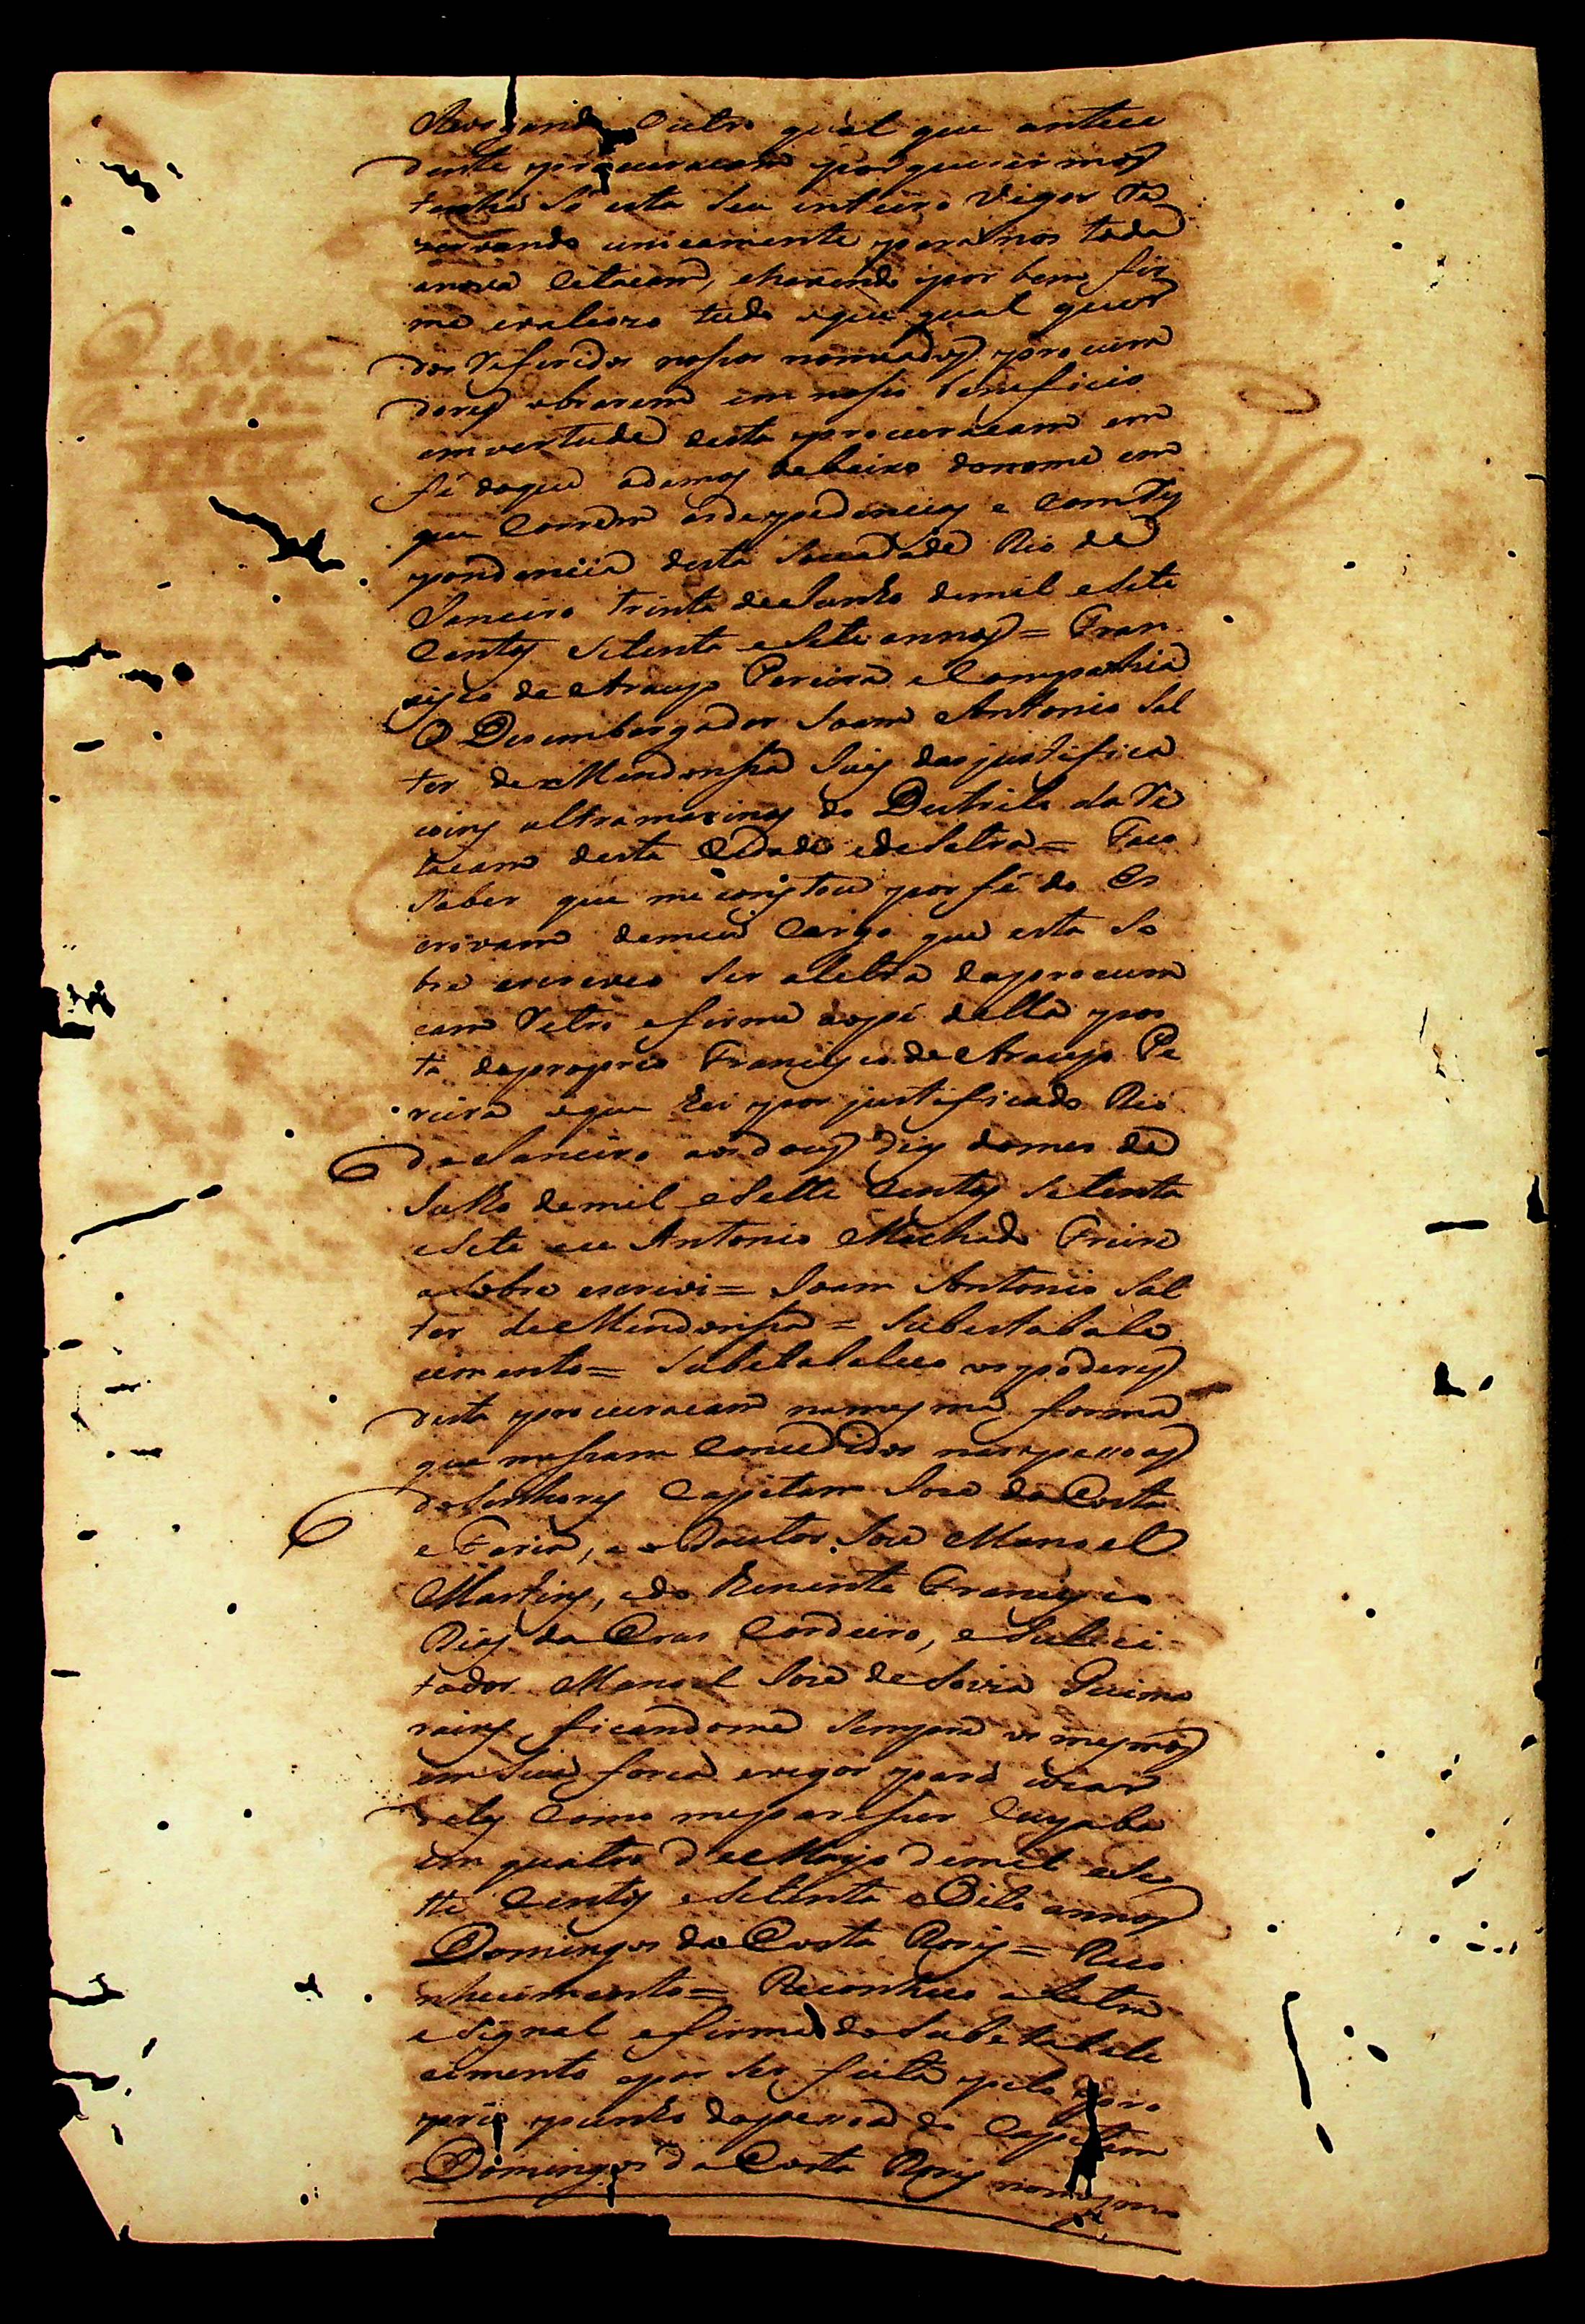 Revogando Outro qual que antece
dente procuracam porque queremos
tenha só esta seu inteiro vigor Re
zervando unicamente para nos toda
anova Citacam, ehavendo por bem fir
me evaliozo tudo oque qual quer
dos Referidos nossos nomeados procura
dores obrarem em nosso beneficio
emvertude desta procuracam em
fé doque adamos debaixo donome em
que Correm asdependencias e Corres
pondencia desta Sociedade Rio de
Janeiro trinta deJunho demil eSete
Centos Setenta eSete annos = Fran
cisco de Araujo Pereira eCompanhia
O Dezembargador Joam Antonio Sal
ter deMendonssa Juis das justifica
coins ultramarinas do Destrito da Re
lacam desta Cidade edeSetra = Faco
Saber que me constou por fé do Es
crivam demeu Cargo que esta So
bre escreveo Ser aletra daprocura
cam Retro efirma aopé della pos
ta doproprio Francisco de Araujo Pe
reira oque hei por justificado Rio
de Janeiro aosdous dias domes de
Julho demil eSette Centos Setenta
eSete eu Antonio Machado Freire
aSobre escrevi = Joam Antonio Sal
ter deMendonssa = Subestabale
cimento = Subestaleleco ospoderes
desta procuracam namesma forma
que messam Concedidos naspessoas
doSenhores Capitam Jose da Costa
e Faria, e o Doutor Jose Manoel
Martins, edo tenente Francisco
Dias da Crus Cordeiro, eSulici
tador Manoel Jose de Guima
rains, ficandome Sempre os mesmos
em Seu forca evigor para uzar
delles Como meparesser Cuyaba
em quatro deMayo demil eSe
tte Centos eSetenta eOito annos
Domingos da Costa Rois = Reco
nhecimento = Reconheco aLetra
eSignal efirma doSubstabele
cimento por Ser feita pelo pro
prio punho dapessoa do Capitam
Domingos da Costa Rois